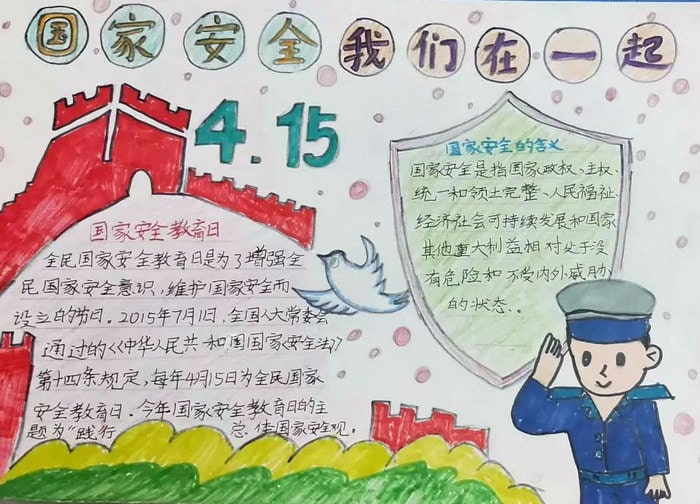 国家安全我们在一起
4.15
国家安全教育日
全民国家安全教育日是为了增强全
民国家安全意识，维护国家安全而
设立的节日。2015年7月1日，全国人大常委会
通过的《中华人民共和国国家安全法》
第十四条规定，每年4月15日为全民国家
安全教育日。今年国家安全教育日的主
题为“践行 总体国家安全观。
国家安全的含义
国家安全是指国家政权、主权、
统一和领土完整、人民福祉、
经济社会可持续发展和国家
其他重大利益相对处于没
有危险和不受内外威胁
的状态。